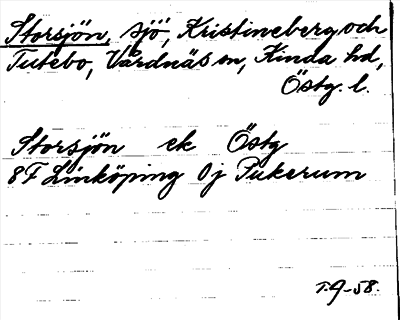 Storsjön, sjö, Kristineberg och
Tutebo, Vårdnäs sn, Kinda hd,
Östg. l.
Storsjön ek Östg
8F Linköping 0j Pukerum
T.G-58.